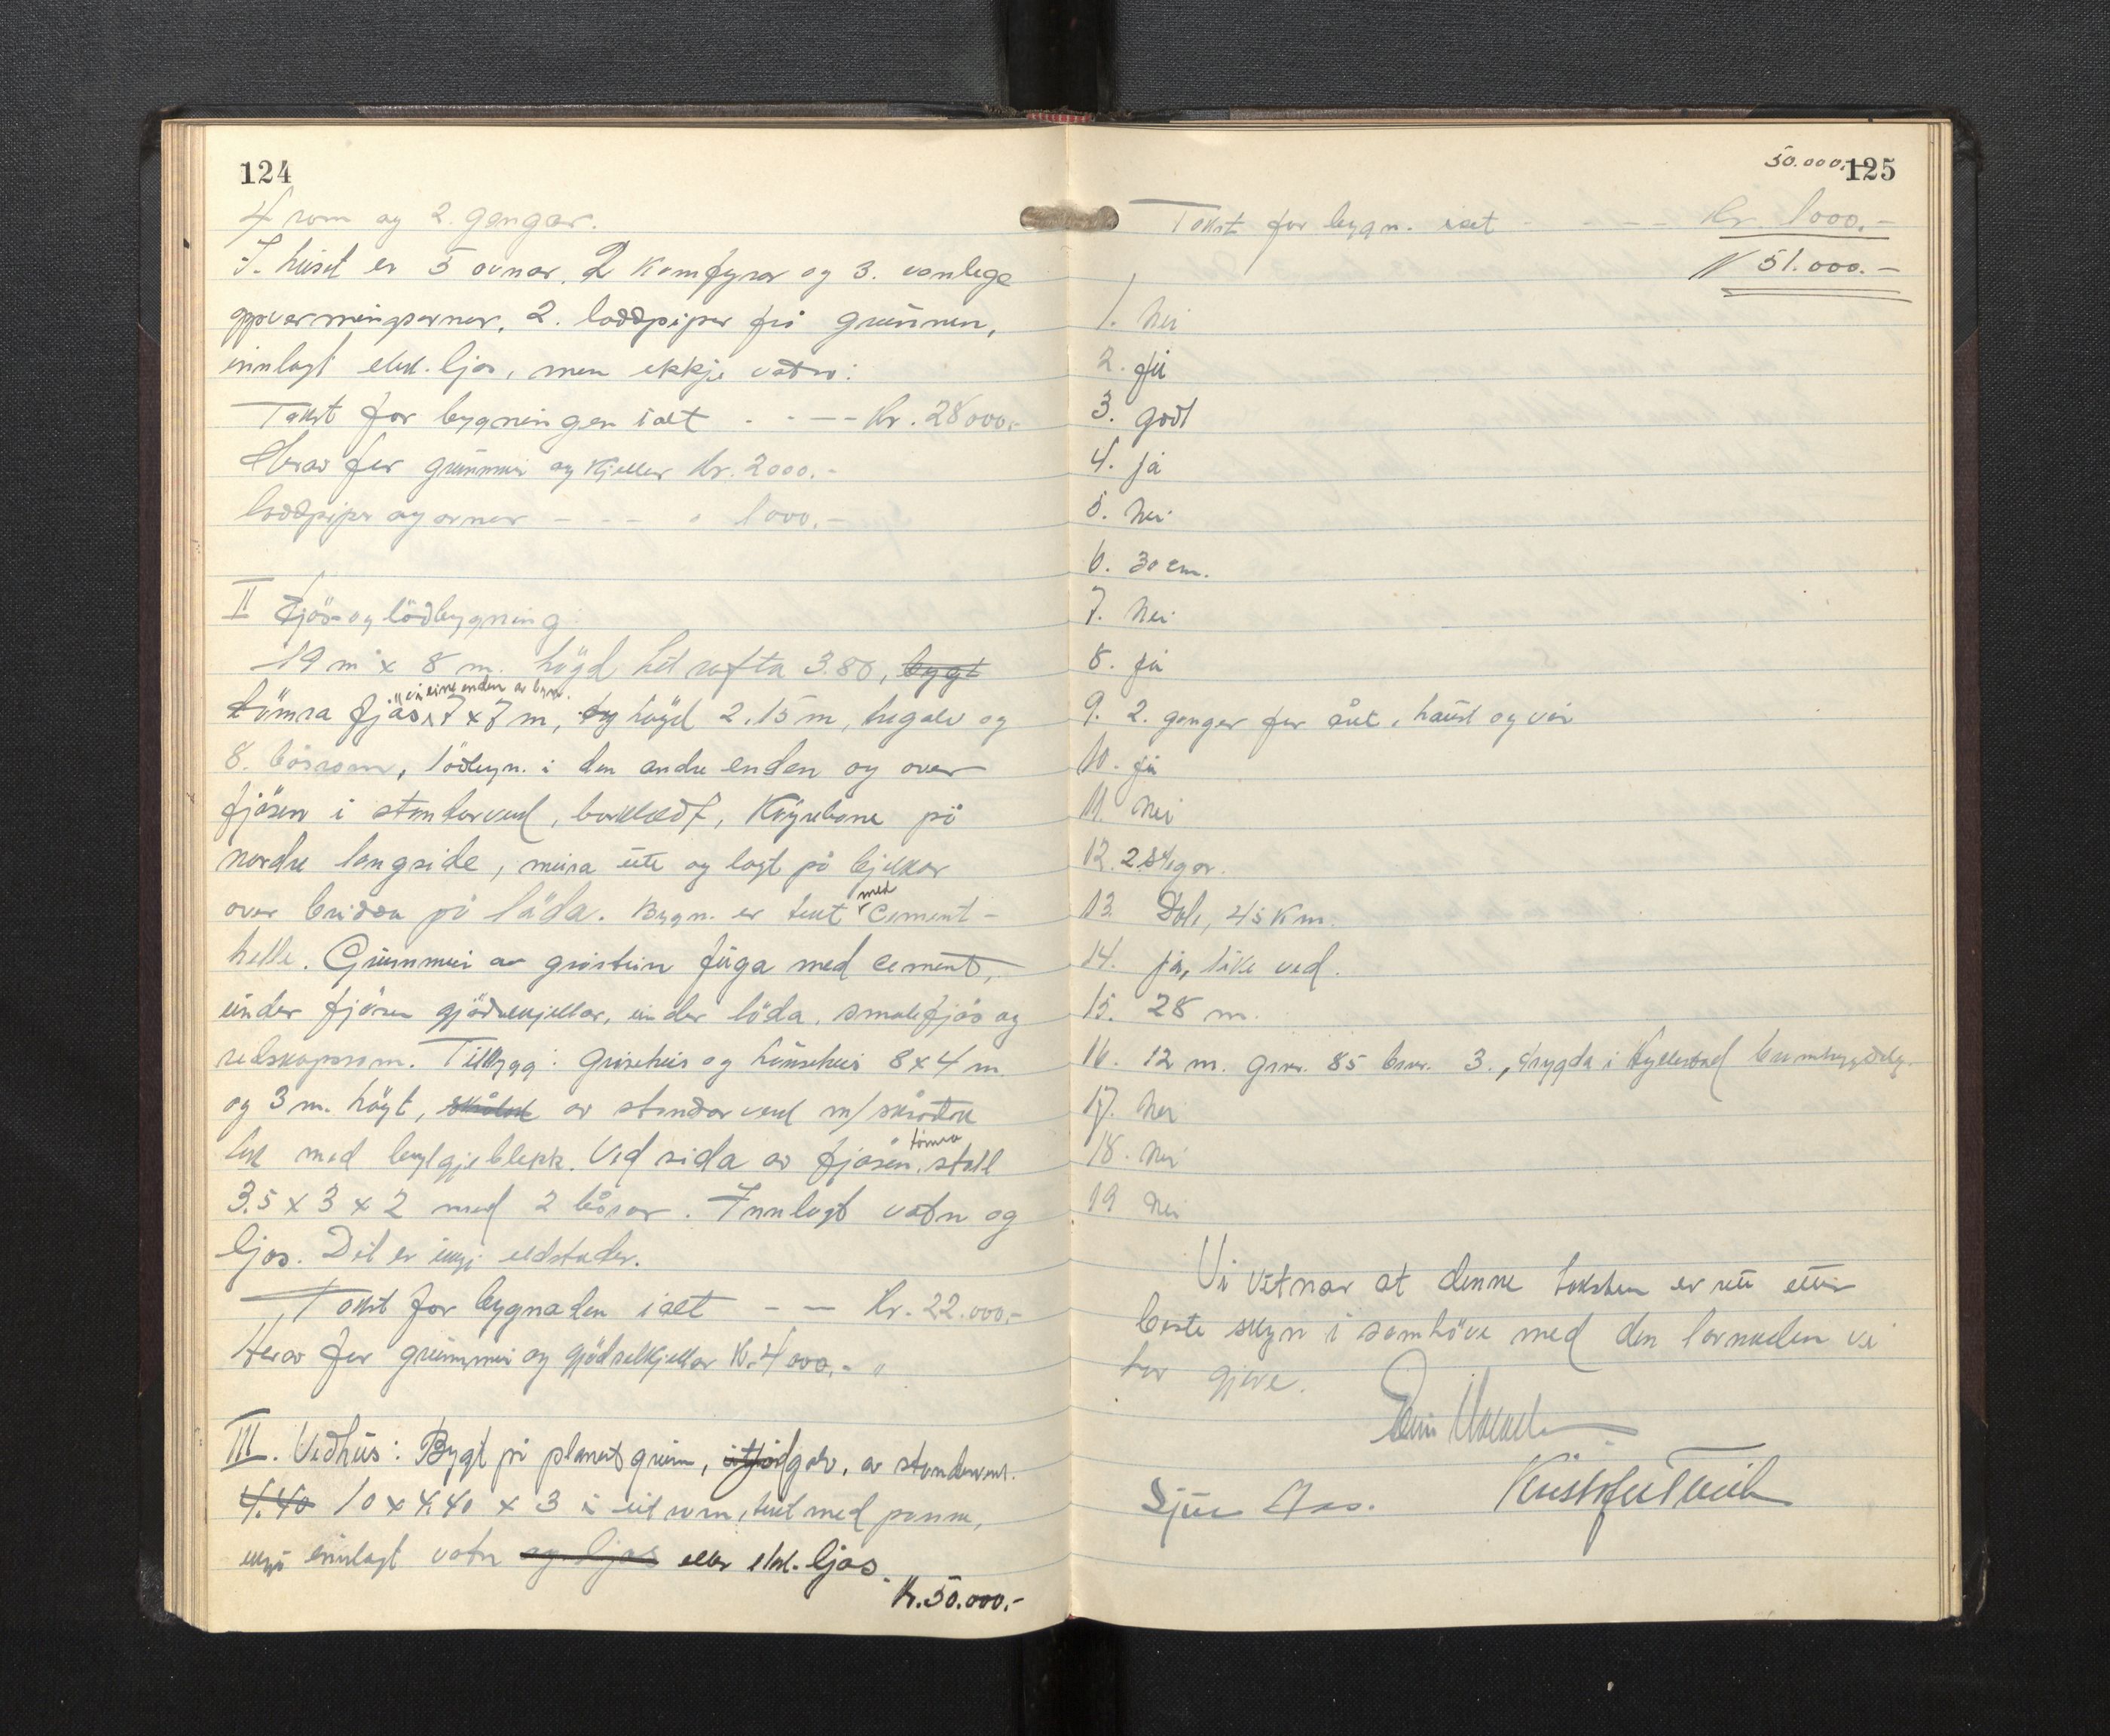 124
4 rom og 2. gangar.
I. huset er 5 ovnar, 2 komfyrar og 3. vanlege
oppvarmingsovnar, 2. loddpiper frå grunnen,
innlagt elek. ljos, men ikkje vatn.
Takst for bygningen ialt - - - - Kr. 28000.-
Herav fer grunnmur og kjeller Kr. 2000.-
loddpiper og ovner - - - " 1000.-
II Fjös- og lödbygning
19 m x 8 m. högd til rafta 3.80, bygt
tömra fjös i eine enden av bygn. 7 x 7 m, og högd 2.15 m, tregolv og
8. båsrom, lödbygn. i den andre enden og over
fjösen i standarverk, bordkledt, Köyrebane på
nordre langside, mura ute og lagt på bjelkar
over bridda på löda. Bygn. er tekt med Cement-
helle. Grunnmur av gråstein fuga med cement,
under fjösen gjödselkjellar, under löda, smalefjös og
redskapsrom. Tilbygg: Grisehus og hönsehus 8 x 4 m.
og 3 m. högt, av standarverk m/
tek med bylgjeblekk. Ved sida av fjösen tömra stall
3.5 x 3 x 2 med 2 båsar. Innlagt vatn og
ljos. Det er ingi eldstader.
Takst for bygnaden ialt - - Kr. 22.000.-
Herav for grunnmur og gjödselkjellar Kr. 4000.-
III. Vedhus: Bygt på planert grunn, utan jordgolv, av standarverk.
4.40 10 x 4.40 x 3 i eit rom, tekt med panne,
ingi innlagt vatn og ljos eller elek. ljos.
Kr. 50.000.-
50.000.-
125
Takst for bygn. ialt - - - - Kr. 1000.-
Kr 51.000.-
1. Nei
2. ja
3. godt
4. ja
5. Nei
6. 30 cm.
7. Nei
8. ja
9. 2. ganger for året, haust og vår
10. ja
11. Nei
12. 2 stigar.
13. Dale, 45 km.
14. ja, like ved.
15. 28 m.
16. 12 m. gnr. 85 bnr. 3., trygda i Hyllestad
17. Nei
18. Nei
19 Nei
Vi vitnar at denne taksten er rett etter
beste skyn i samhöve med den lovnaden vi
har gjeve.
Sjur Aas.